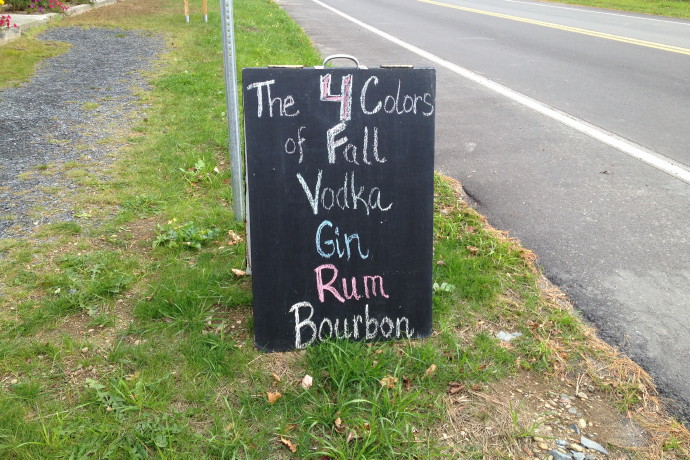 The 4 Colors
of Fall
Vodka
Gin
Rum
Bourbon